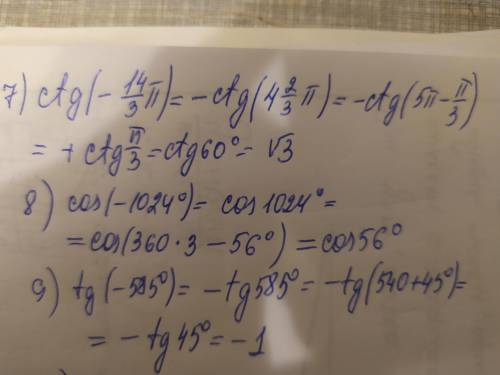 7) ctg(-14/3 π) = -ctg(4 2/3 π) = -ctg(5π - π/3)
= + ctg π/3 = ctg 60° = √3
8) cos(-1024°) = cos 1024° =
= cos(360·3 - 56°) = cos 56°
9) tg(-585°) = -tg 585° = -tg(540+45°) =
= -tg 45° = -1